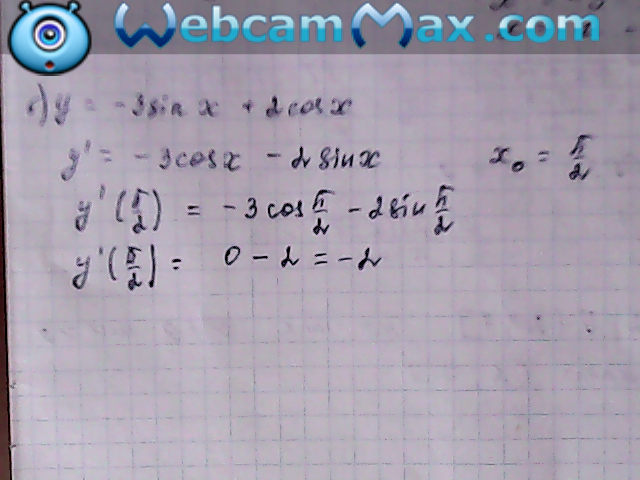 WebcamMax.com
y = -3sin x + 2cosx
y' = -3cosx - 2sinx x₀ = π/2
y'(π/2) = -3cos π/2 - 2sin π/2
y'(π/2) = 0 - 2 = -2